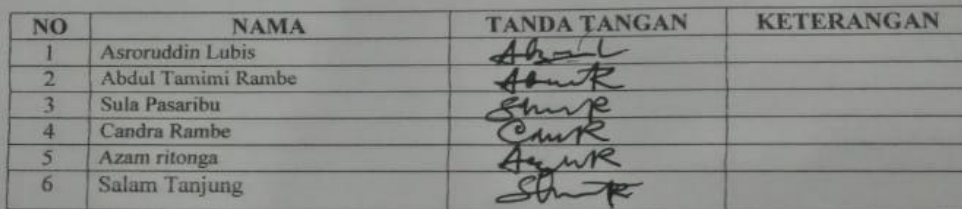 NO NAMA TANDA TANGAN KETERANGAN
1 Asroruddin Lubis
2 Abdul Tamimi Rambe
3 Sula Pasaribu
4 Candra Rambe
5 Azam ritonga
6 Salam Tanjung